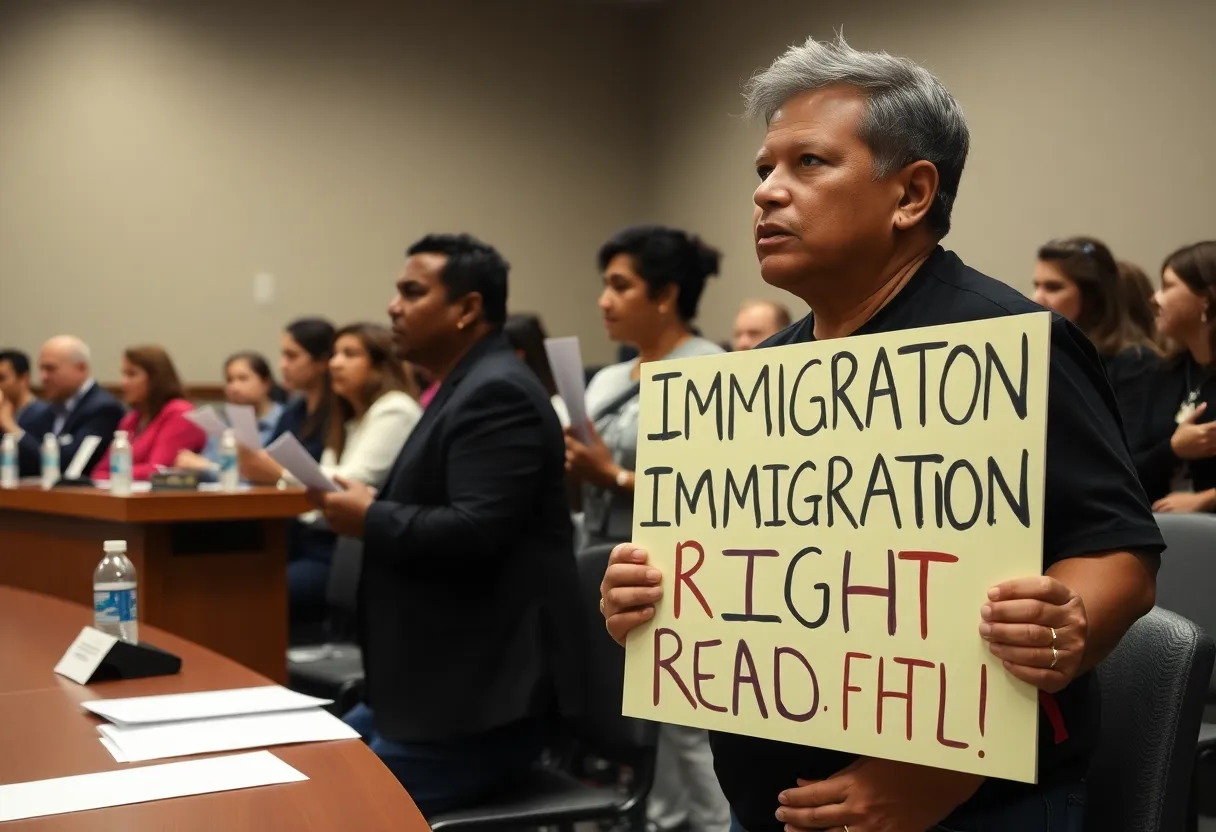 IMMIGRATON
IMMIGRATION
RIGHT
READ. FHTL!